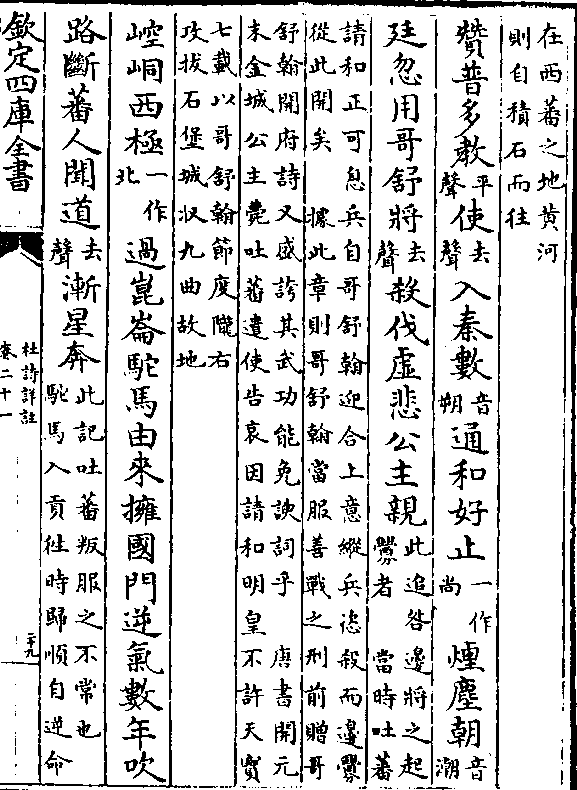 在西蕃之地黄河
則自積石而往
贊普多教平聲使去聲入秦數音朔通和好止一作尚煙塵朝音潮
廷忽用哥舒將去聲殺伐虚悲公主親此追咎邊將之起
釁者　當時吐蕃
請和正可息兵自哥舒翰迎合上意縱兵恣殺而邊釁
從此開矣　據此章則哥舒翰當服善戰之刑前贈哥
舒翰開府詩又盛誇其武功能免諛詞乎　唐書開元
末金城公主薨吐蕃遣使告哀因請和明皇不許天寳
七載以哥舒翰節度隴右
攻拔石堡城収九曲故地
崆峒西極一作北過崑崙駝馬由來擁國門逆氣數年吹
路斷蕃人聞道去聲漸星奔此記吐蕃叛服之不常也
駝馬入貢徃時歸順自逆命
欽定四庫全書
杜詩詳註
卷二十一
二十九